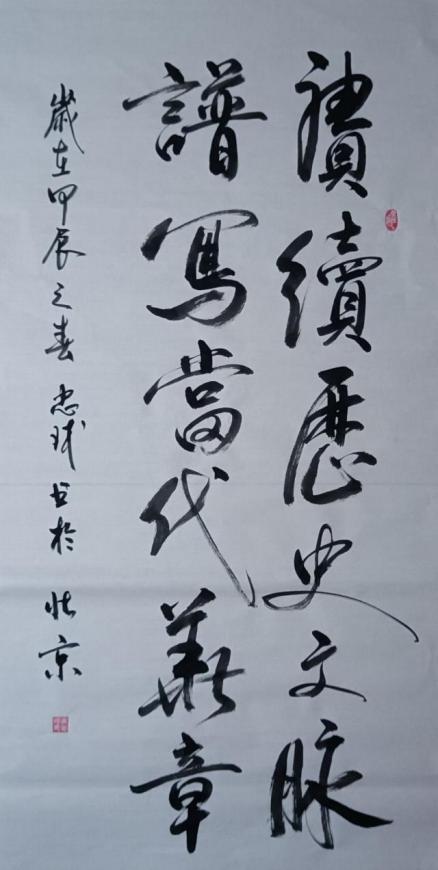 賡續歷史文脉
譜寫當代華章
歲在甲辰之春 忠球 书於 北京